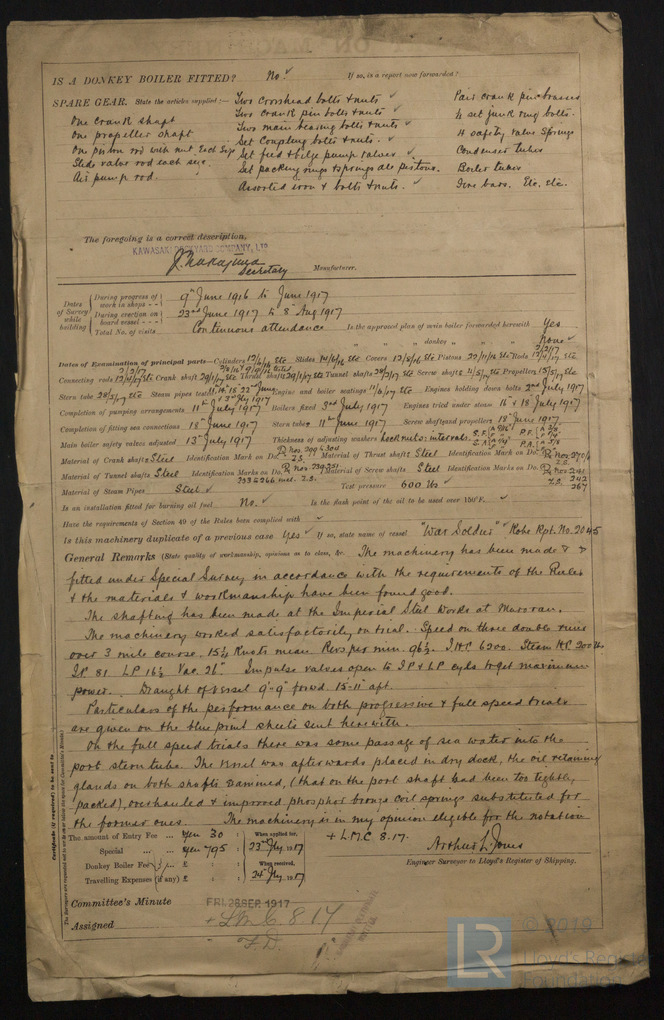 IS A DONKEY BOILER FITTED? No. If so, is a report now forwarded?
SPARE GEAR. State the articles supplied:— Two Crosshead bolts & nuts Pair crank pin brasses
One crank shaft Two crank pin bolts & nuts ½ set junk ring bolts.
One propeller shaft Two main bearing bolts & nuts 4 safety valve springs
One piston rod with nut each size Set Coupling bolts & nuts. Condenser tubes
Slide valve rod each size. Set feed & bilge pump valves Boiler tubes
Air pump rod. Set packing rings & springs all pistons. Fire bars. Etc. etc.
Assorted iron & bolts & nuts.
The foregoing is a correct description,
KAWASAKI DOCKYARD COMPANY, LTD
Secretary Manufacturer.
Dates of Survey while building
During progress of work in shops - - 9th June 1916 to June 1917
During erection on board vessel - - 23rd June 1917 to 8 Aug 1917
Total No. of visits Continuous attendance Is the approved plan of main boiler forwarded herewith Yes
" " " donkey " " " None
Dates of Examination of principal parts—Cylinders Slides Covers Pistons Rods
Connecting rods Crank shaft Thrust shaft Tunnel shafts Screw shaft Propeller
Stern tube Steam pipes tested Engine and boiler seatings Engines holding down bolts 2nd July 1917
Completion of pumping arrangements 11th July 1917 Boilers fixed 3rd July 1917 Engines tried under steam 16 & 18 July 1917
Completion of fitting sea connections 18th June 1917 Stern tube 11th June 1917 Screw shaft and propellers 18th June 1917
Main boiler safety valves adjusted 13th July 1917 Thickness of adjusting washers
Material of Crank shafts Steel Identification Mark on Do. Material of Thrust shaft Steel Identification Mark on Do.
Material of Tunnel shafts Steel Identification Marks on Do. Material of Screw shafts Steel Identification Marks on Do.
Material of Steam Pipes Steel Test pressure 600 lbs
Is an installation fitted for burning oil fuel No. Is the flash point of the oil to be used over 150°F.
Have the requirements of Section 49 of the Rules been complied with
Is this machinery duplicate of a previous case Yes If so, state name of vessel "War Soldier" Kobe Rpt. No. 2045
General Remarks (State quality of workmanship, opinions as to class, &c. The machinery has been made &
fitted under Special Survey in accordance with the requirements of the Rules
& the materials & workmanship have been found good.
The shafting has been made at the Imperial Steel Works at Muroran.
The machinery worked satisfactorily on trial. Speed on three double runs
over 3 mile course. 15¼ Knots mean. Revs per min. 96½. I.H.P. 6200. Steam H.P. 200 lbs
I.P. 81 L.P. 16½ Vac. 26". Impulse valves open to I.P. & L.P. cyls to get maximum
power. Draught of vessel 9'-9" forwd 15'-11" aft.
Particulars of the performance on both progressive & full speed trials
are given on the blue print sheets sent herewith.
On the full speed trials there was some passage of sea water into the
port stern tube. The vessel was afterwards placed in dry dock, the oil retaining
glands on both shafts examined, (that on the port shaft had been too tightly
packed), overhauled & improved phosphor bronze coil springs substituted for
the former ones. The machinery is in my opinion eligible for the notation
The amount of Entry Fee ... Yen 30 When applied for, + L.M.C. 8.17.
Special ... Yen 795 23rd Aug. 1917
Donkey Boiler Fee ... £ When received,
Travelling Expenses (if any) £ 24th Aug. 1917
Arthur L. Jones
Engineer Surveyor to Lloyd's Register of Shipping.
Committee's Minute FRI. 28 SEP. 1917
Assigned + LMC 8.17
F.D.
Certificate (if required) to be sent to
The Surveyors are requested not to write on or below the space for Committee's Minute.
LR
© 2019
Lloyd's Register
Foundation